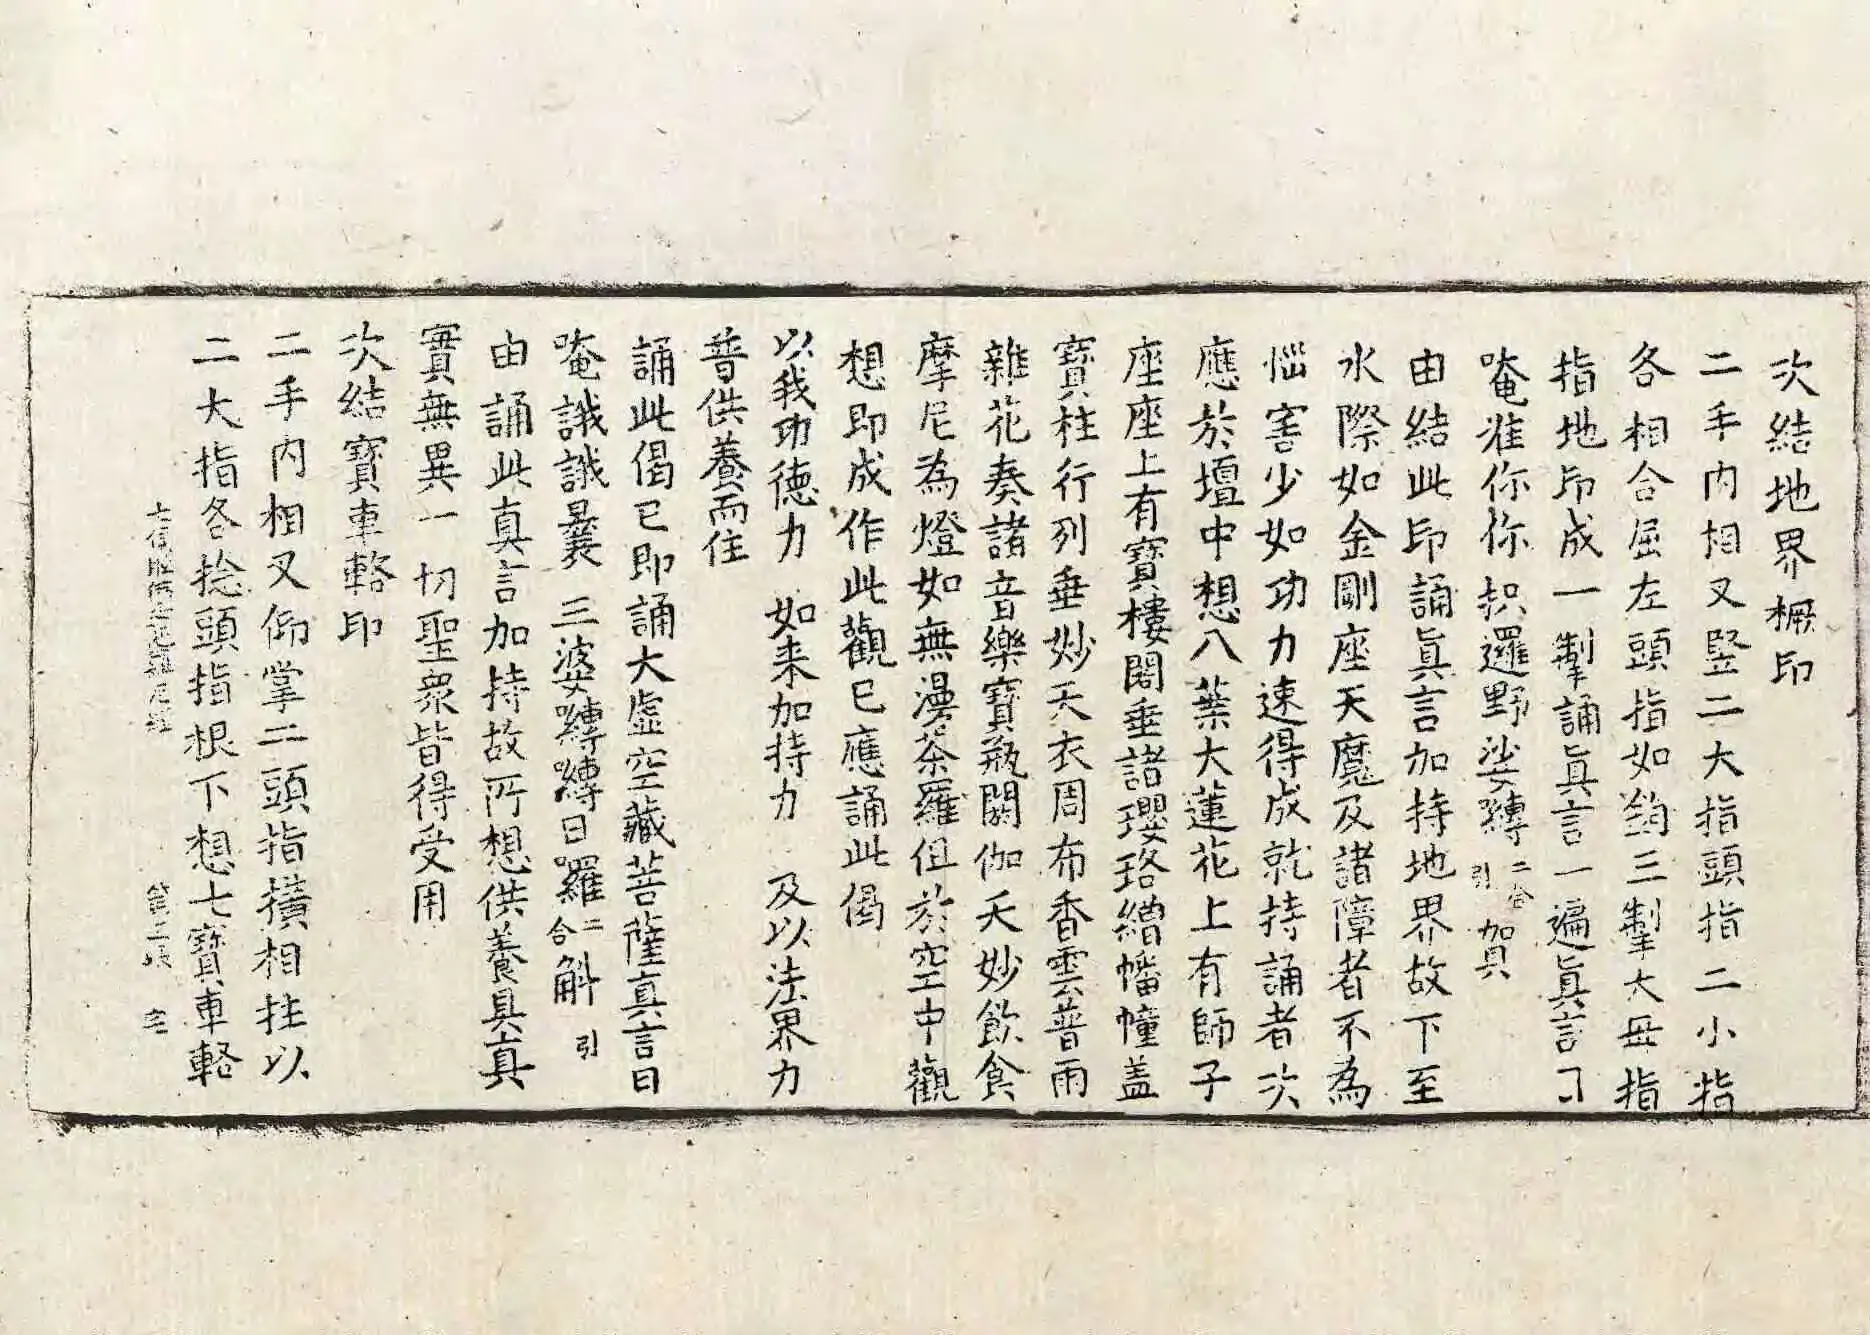 次結地界橛印
二手內相叉竪二大指頭指二小指
各相合屈左頭指如鉤三掣大母指
指地印成一掣誦眞言一遍眞言曰
唵准你你枳邏野娑嚩二合引賀
由結此印誦眞言加持地界故下至
水際如金剛座天魔及諸障者不為
惱害少如功力速得成就持誦者次
應於壇中想八葉大蓮花上有師子
座座上有寶樓閣垂諸瓔珞繒幡幢盖
寶柱行列垂妙天衣周布香雲普雨
雜花奏諸音樂寶瓶閼伽天妙飲食
摩尼為燈如無漫荼羅但於空中觀
想即成作此觀已應誦此偈
以我功德力 如来加持力 及以法界力
普供養而住
誦此偈已即誦大虛空藏菩薩真言曰
唵誐誐曩三婆嚩嚩日囉二合斛引
由誦此真言加持故所想供養具真
實無異一切聖衆皆得受用
次結寶車輅印
二手内相叉仰掌二頭指撗相拄以
二大指各捻頭指根下想七寶車輅